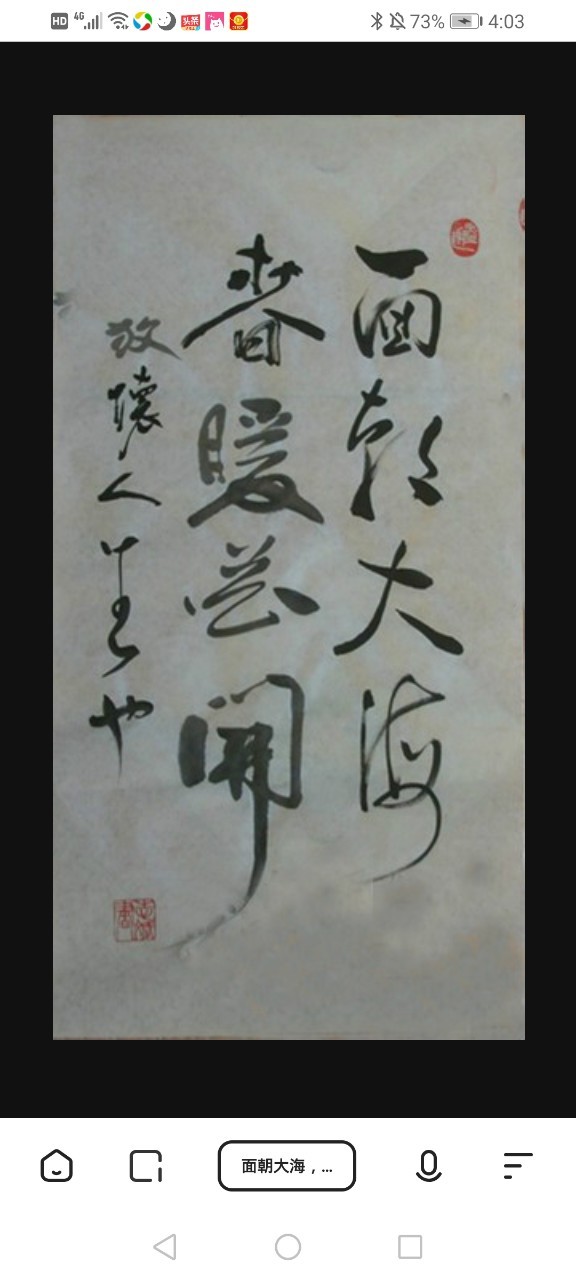 HD 4G 73% 4:03
面朝大海
春暖花開
放懷人生也
面朝大海，...